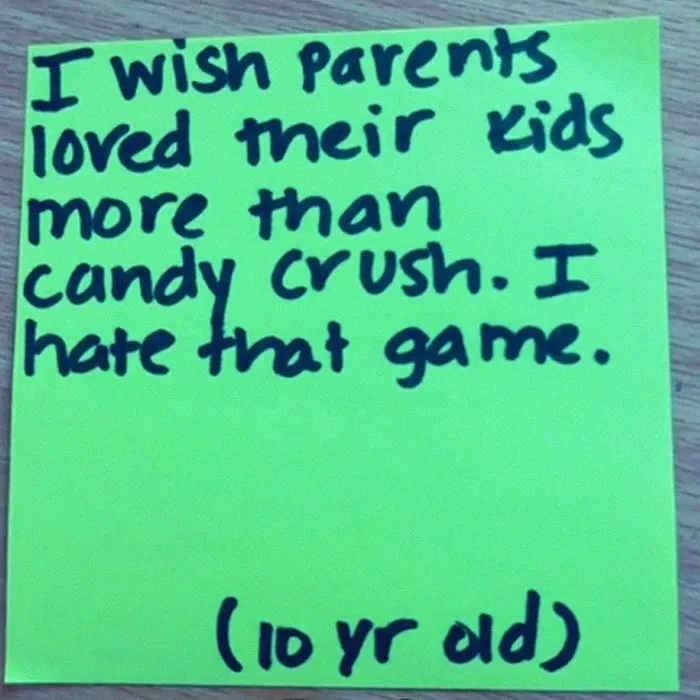 I wish parents
loved their kids
more than
candy crush. I
hate that game.
(10 yr old)